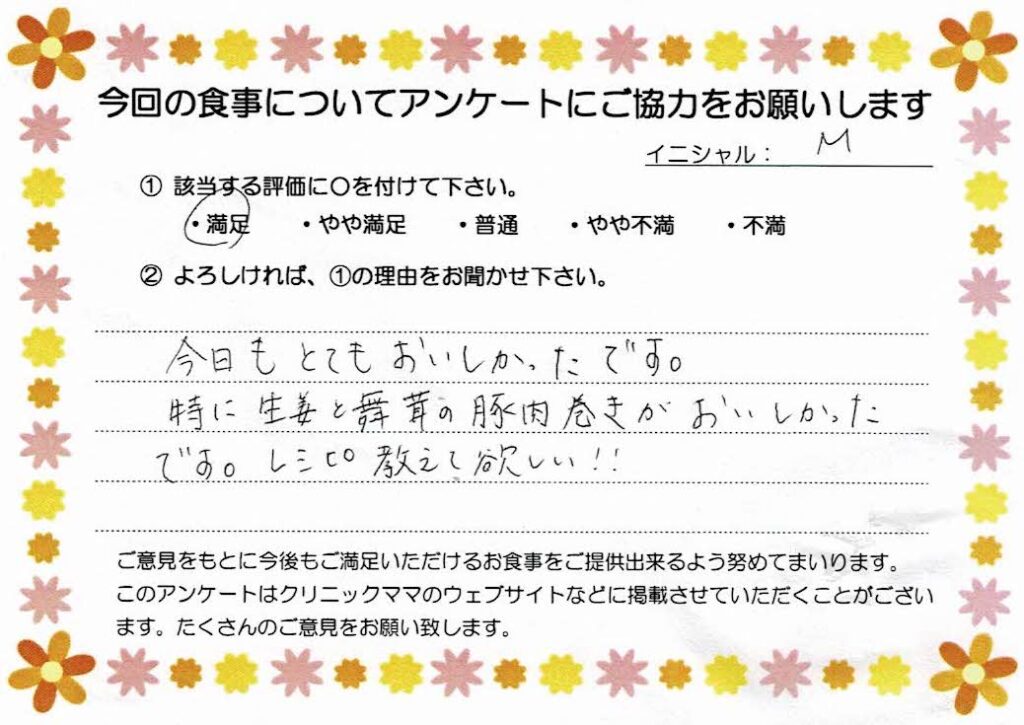 今回の食事についてアンケートにご協力をお願いします
イニシャル： M
① 該当する評価に〇を付けて下さい。
・満足 ・やや満足 ・普通 ・やや不満 ・不満
② よろしければ、①の理由をお聞かせ下さい。
今日もとてもおいしかったです。
特に生姜と舞茸の豚肉巻きがおいしかった
です。レシピ教えて欲しい!!
ご意見をもとに今後もご満足いただけるお食事をご提供出来るよう努めてまいります。
このアンケートはクリニックママのウェブサイトなどに掲載させていただくことがござい
ます。たくさんのご意見をお願い致します。